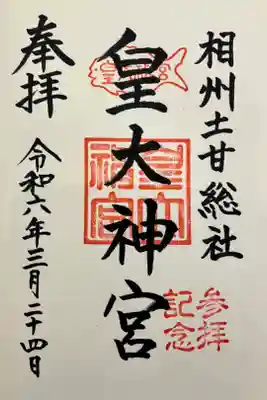 相州土甘総社
参拝
記念
皇大神宮
皇大
神宮
奉拝
令和六年三月二十四日